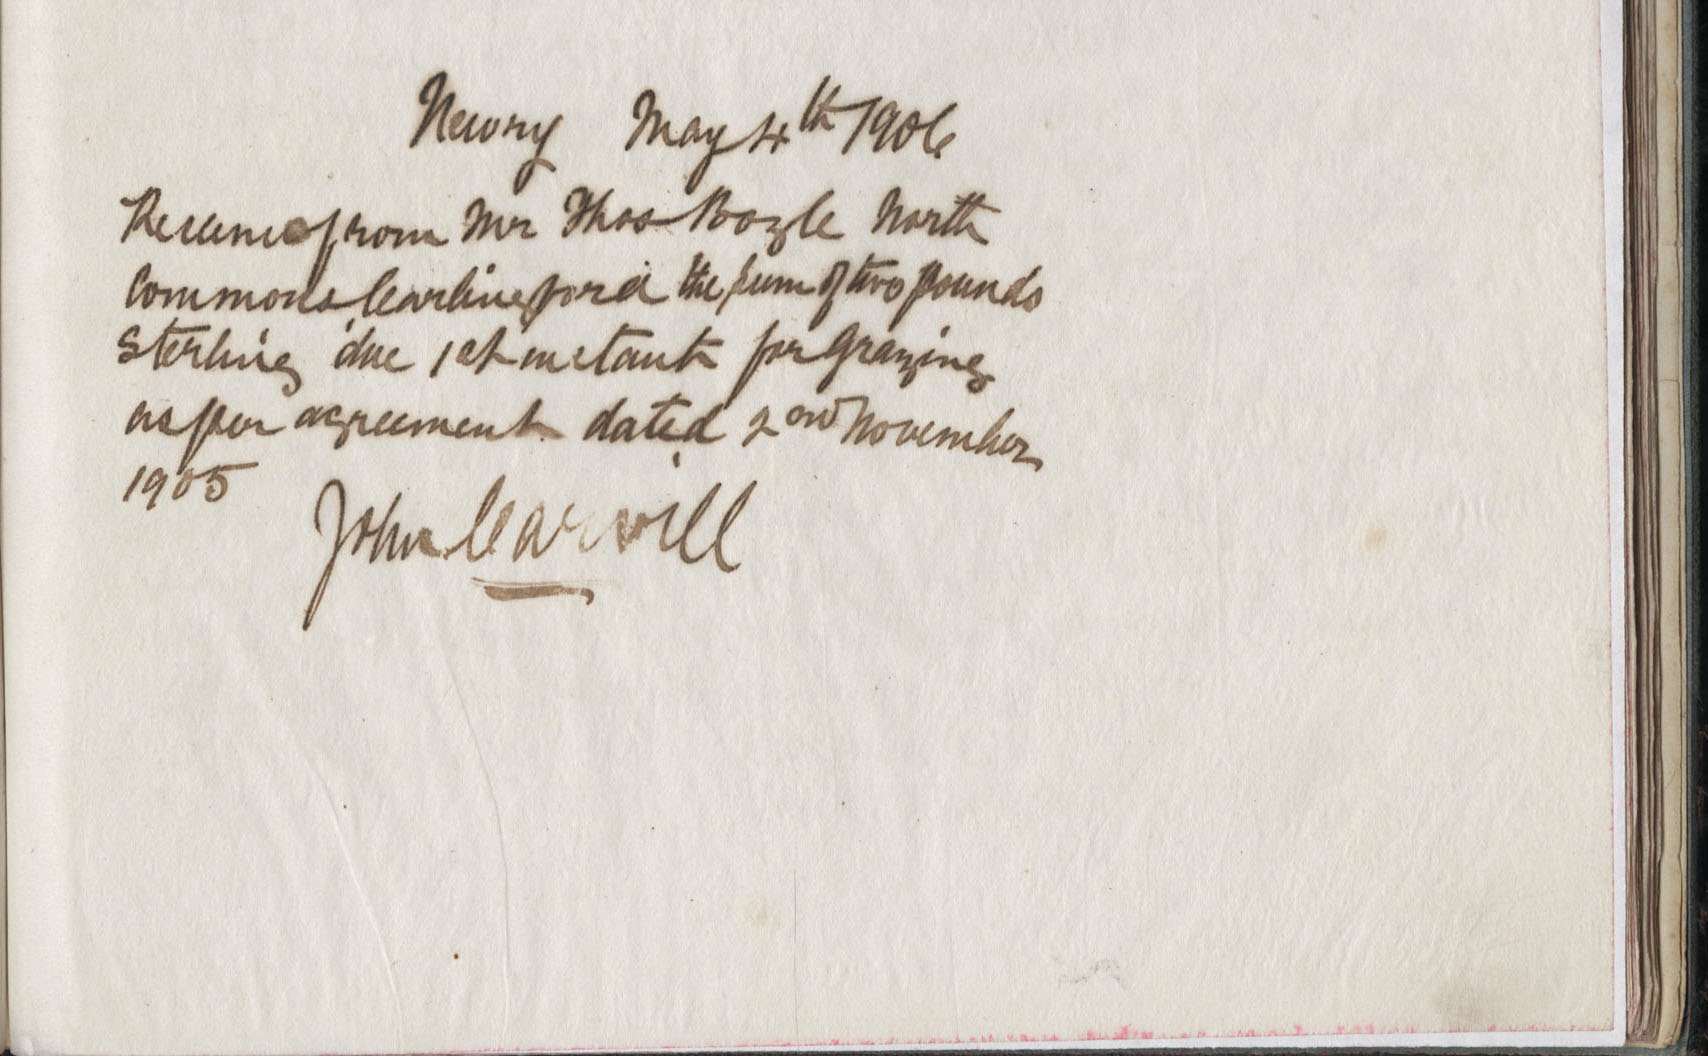 Newry May 4th 1906
Received from Mr Thos Boyle North
Commons Carlingford the sum of two pounds
Sterling due 1st instant for grazing
as per agreement dated 2nd November
1905
John Carvill